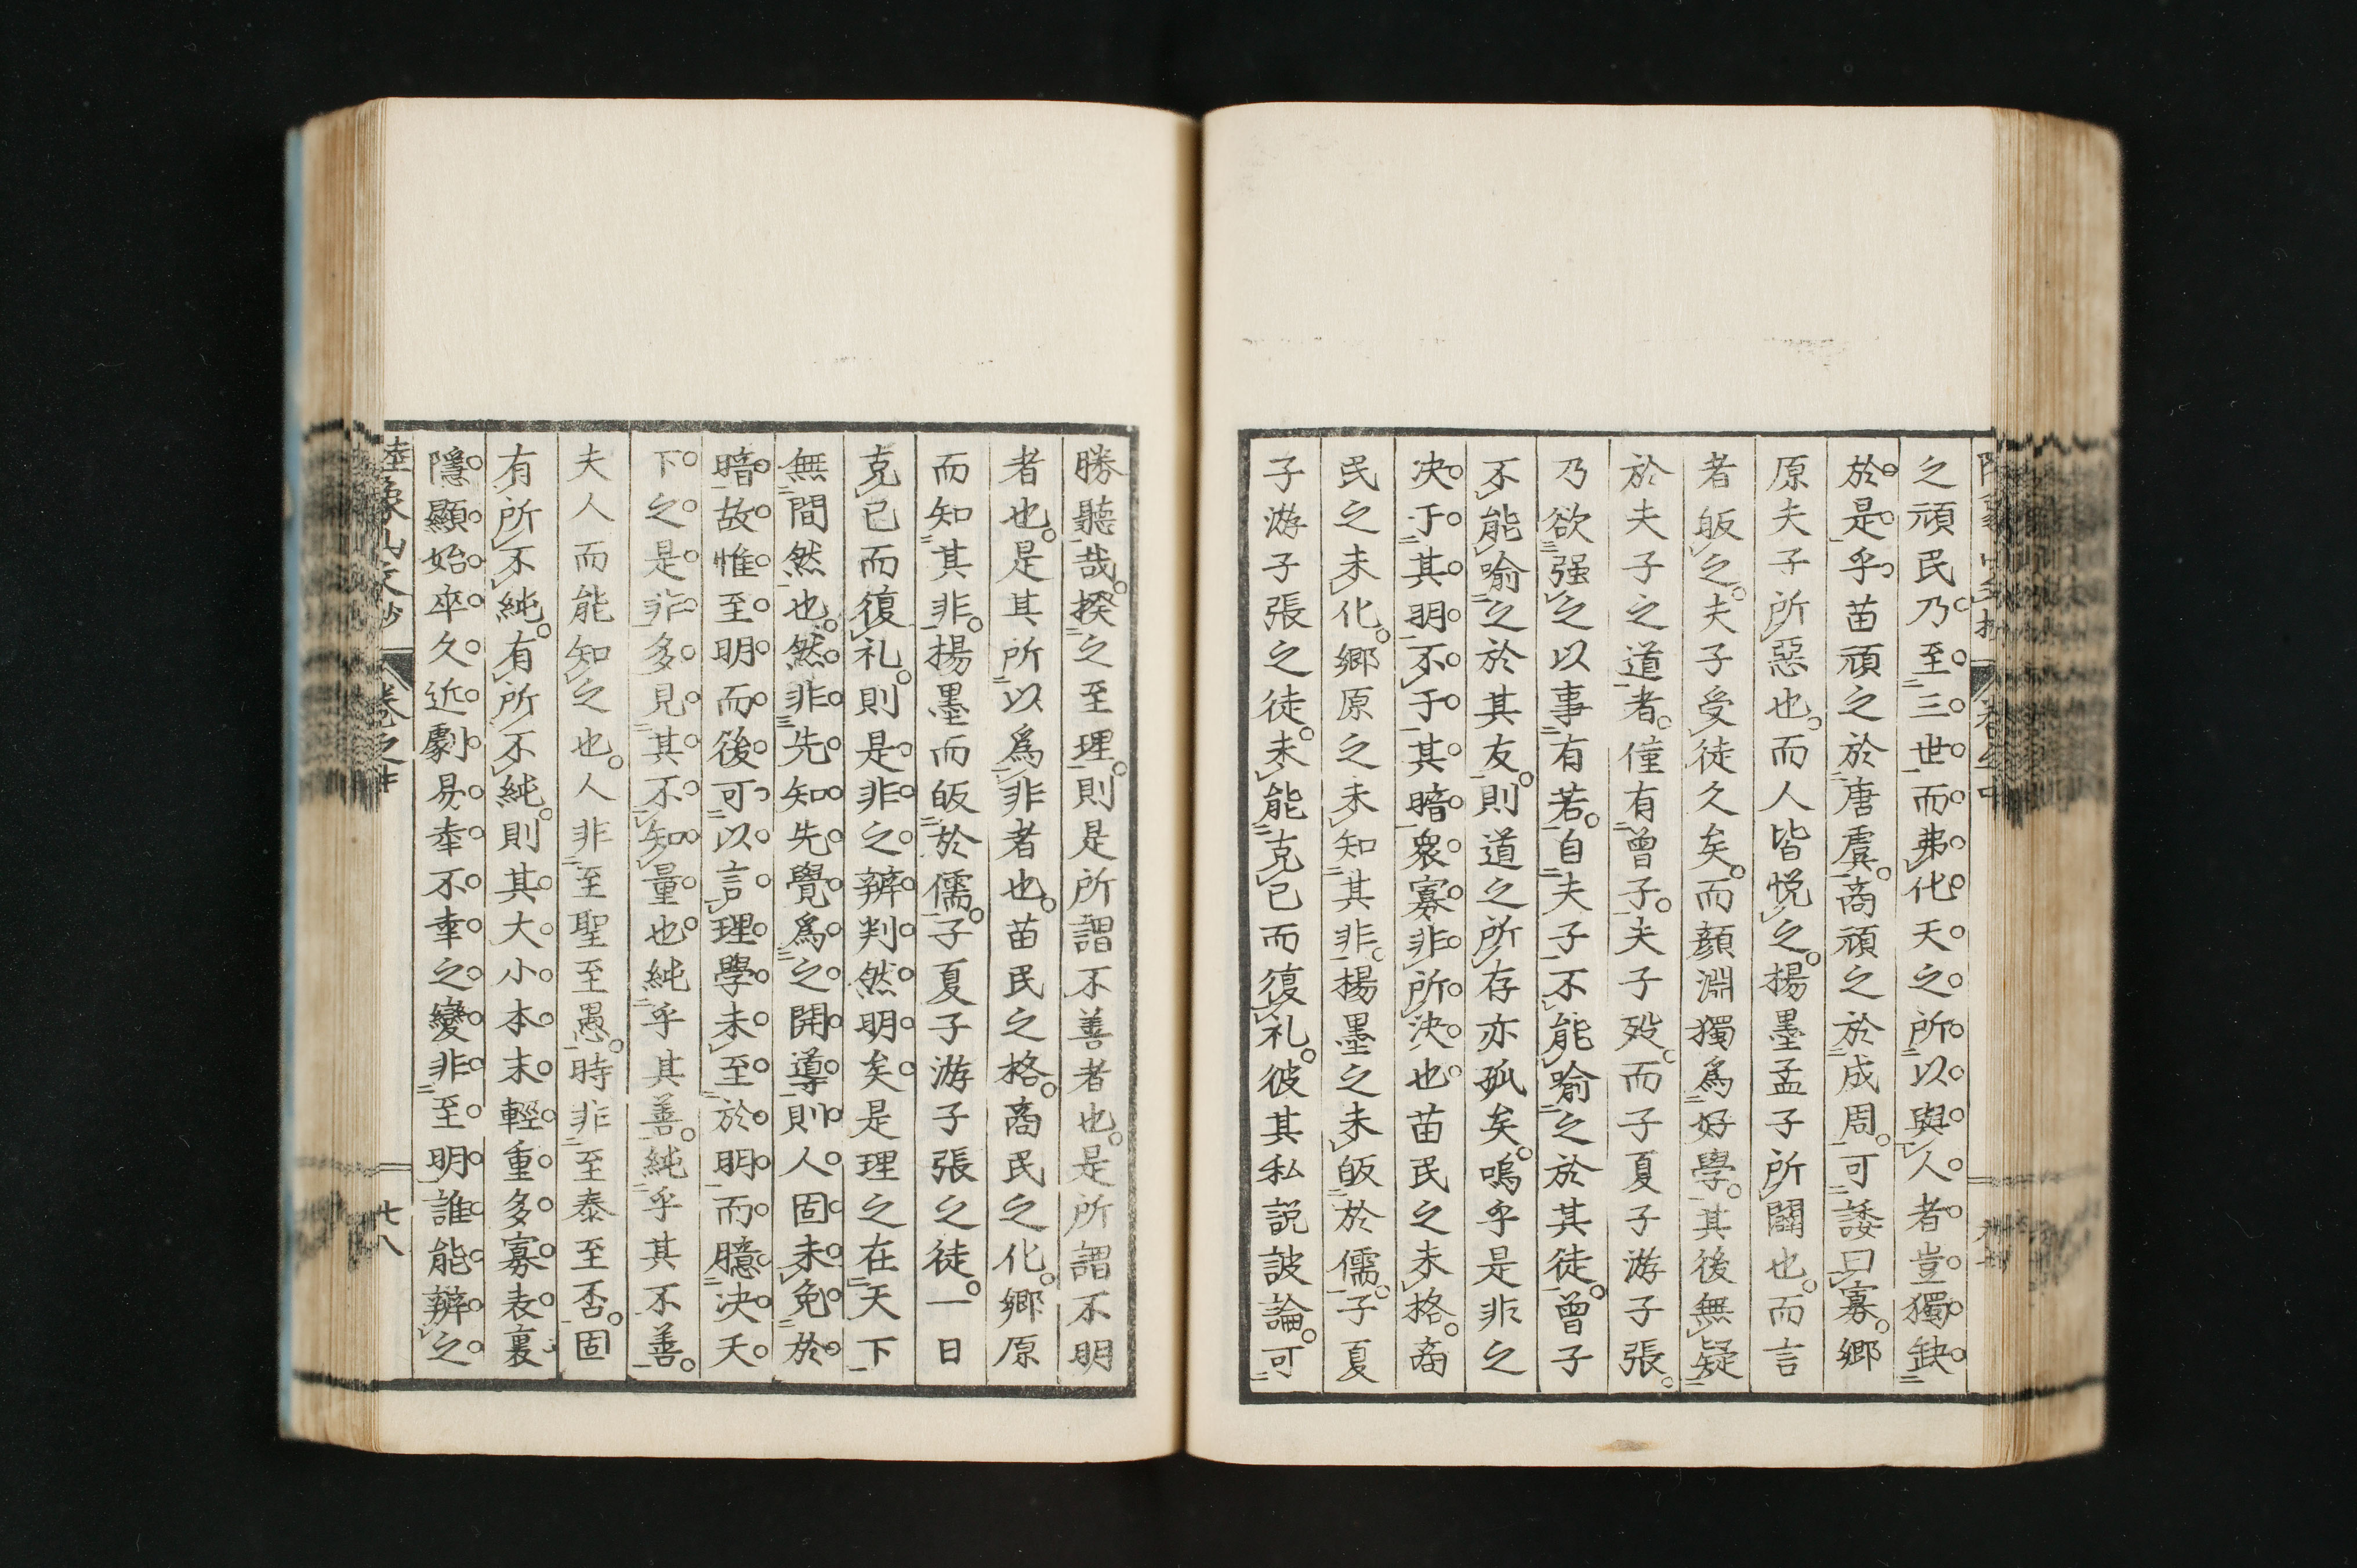 之頑民乃至三世而弗化天之所以與人者豈獨缺
於是乎苗頑之於唐虞商頑之於成周可諉曰寡鄉
原夫子所惡也而人皆悅之楊墨孟子所闢也而言
者皈之夫子受徒久矣而顏淵獨爲好學其後無疑
於夫子之道者僅有曾子夫子歿而子夏子游子張
乃欲强之以事有若自夫子不能喻之於其徒曾子
不能喻之於其友則道之所存亦孤矣嗚乎是非之
决于其明不于其暗衆寡非所决也苗民之未格商
民之未化鄉原之未知其非楊墨之未皈於儒子夏
子游子張之徒未能克己而復礼彼其私説詖論可
勝聽哉揆之至理則是所謂不善者也是所謂不明
者也是其所以爲非者也苗民之格商民之化鄉原
而知其非楊墨而皈於儒子夏子游子張之徒一日
克己而復礼則是非之辨判然明矣是理之在天下
無間然也然非先知先覺爲之開導則人固未免於
暗故惟至明而後可以言理學未至於明而臆决天
下之是非多見其不知量也純乎其善純乎其不善
夫人而能知之也人非至聖至愚時非至泰至否固
有所不純有所不純則其大小本末輕重多寡表裏
隱顯始卒久近劇易幸不幸之變非至明誰能辨之
陸象山文抄 卷之中 廿八